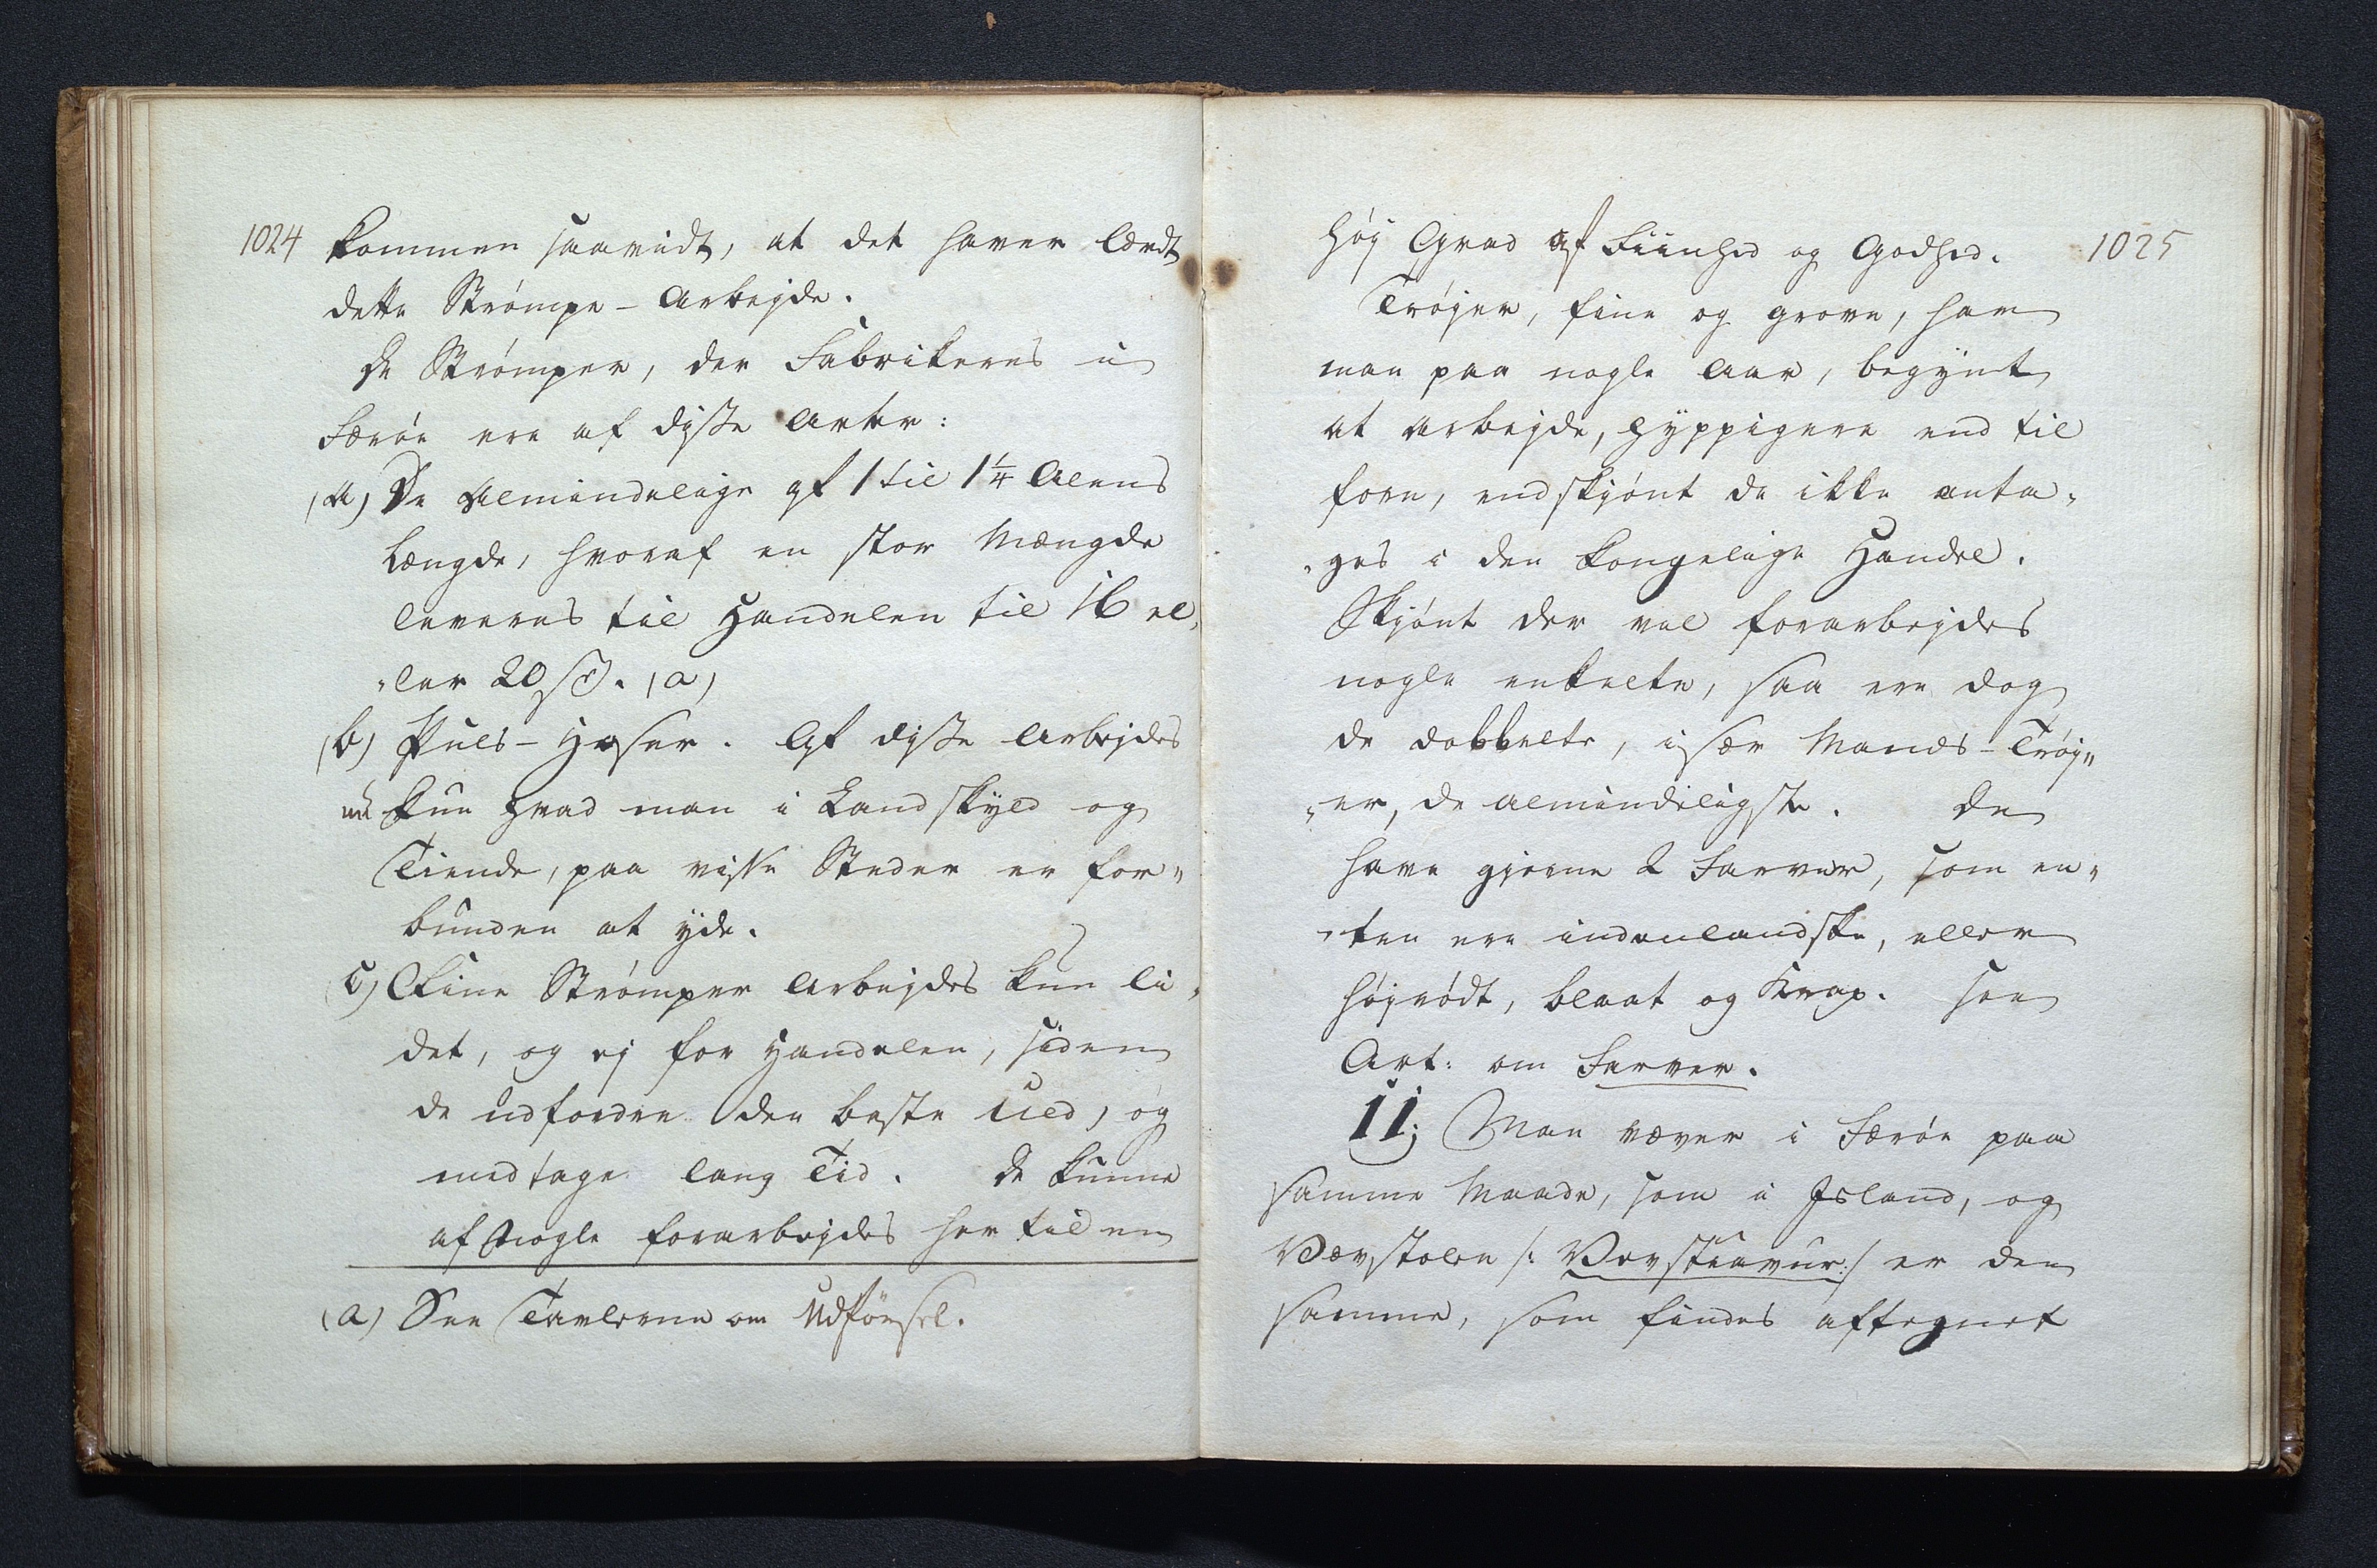 1024
kommen saavidt, at det haver lærdt
dette Strømpe-Arbejde.
De Strømper, der Fabrikeres i
Færøe ere af disse Arter:
(a) De Almindelige af 1 til 1¼ Alens
Længde, hvoraf en stor Mængde
leveres til Handelen til 16 el„
„ler 20 ß. (a)
(b) Puls-Hoser. Af disse Arbejdes
kun hvad man i Landskyld og
Tiende, paa visse Steder er for„
bunden at yde.
(c) Fine Strømper Arbejdes kun li„
det, og ej for Handelen, siden
de udfordre den beste Uld, og
medtage lang Tid. De kunne
af Nogle forarbejdes her til en
(a) See Tavlerne om Udførsel.
1025
høj Grad af Fiinhed og Godhed.
Trøjer, fine og grove, har
man paa nogle Aar, begyndt
at arbejde, hyppigere end til
forn, endskjønt de ikke anta„
„ges i den kongelige Handel.
Skjønt der vel forarbejdes
nogle enkelte, saa ere dog
de dobbelte, især Mands-Trøj„
„er, de almindeligste. De
have gjerne 2 Farver, som en„
„ten ere indenlandske, eller
højrødt, blaat og Krap. see
Art: om Farver.
11; Man væver i Færøe paa
samme Maade, som i Island, og
Vævstolen /: Vevstiavur :/ er den
samme, som findes aftegnet